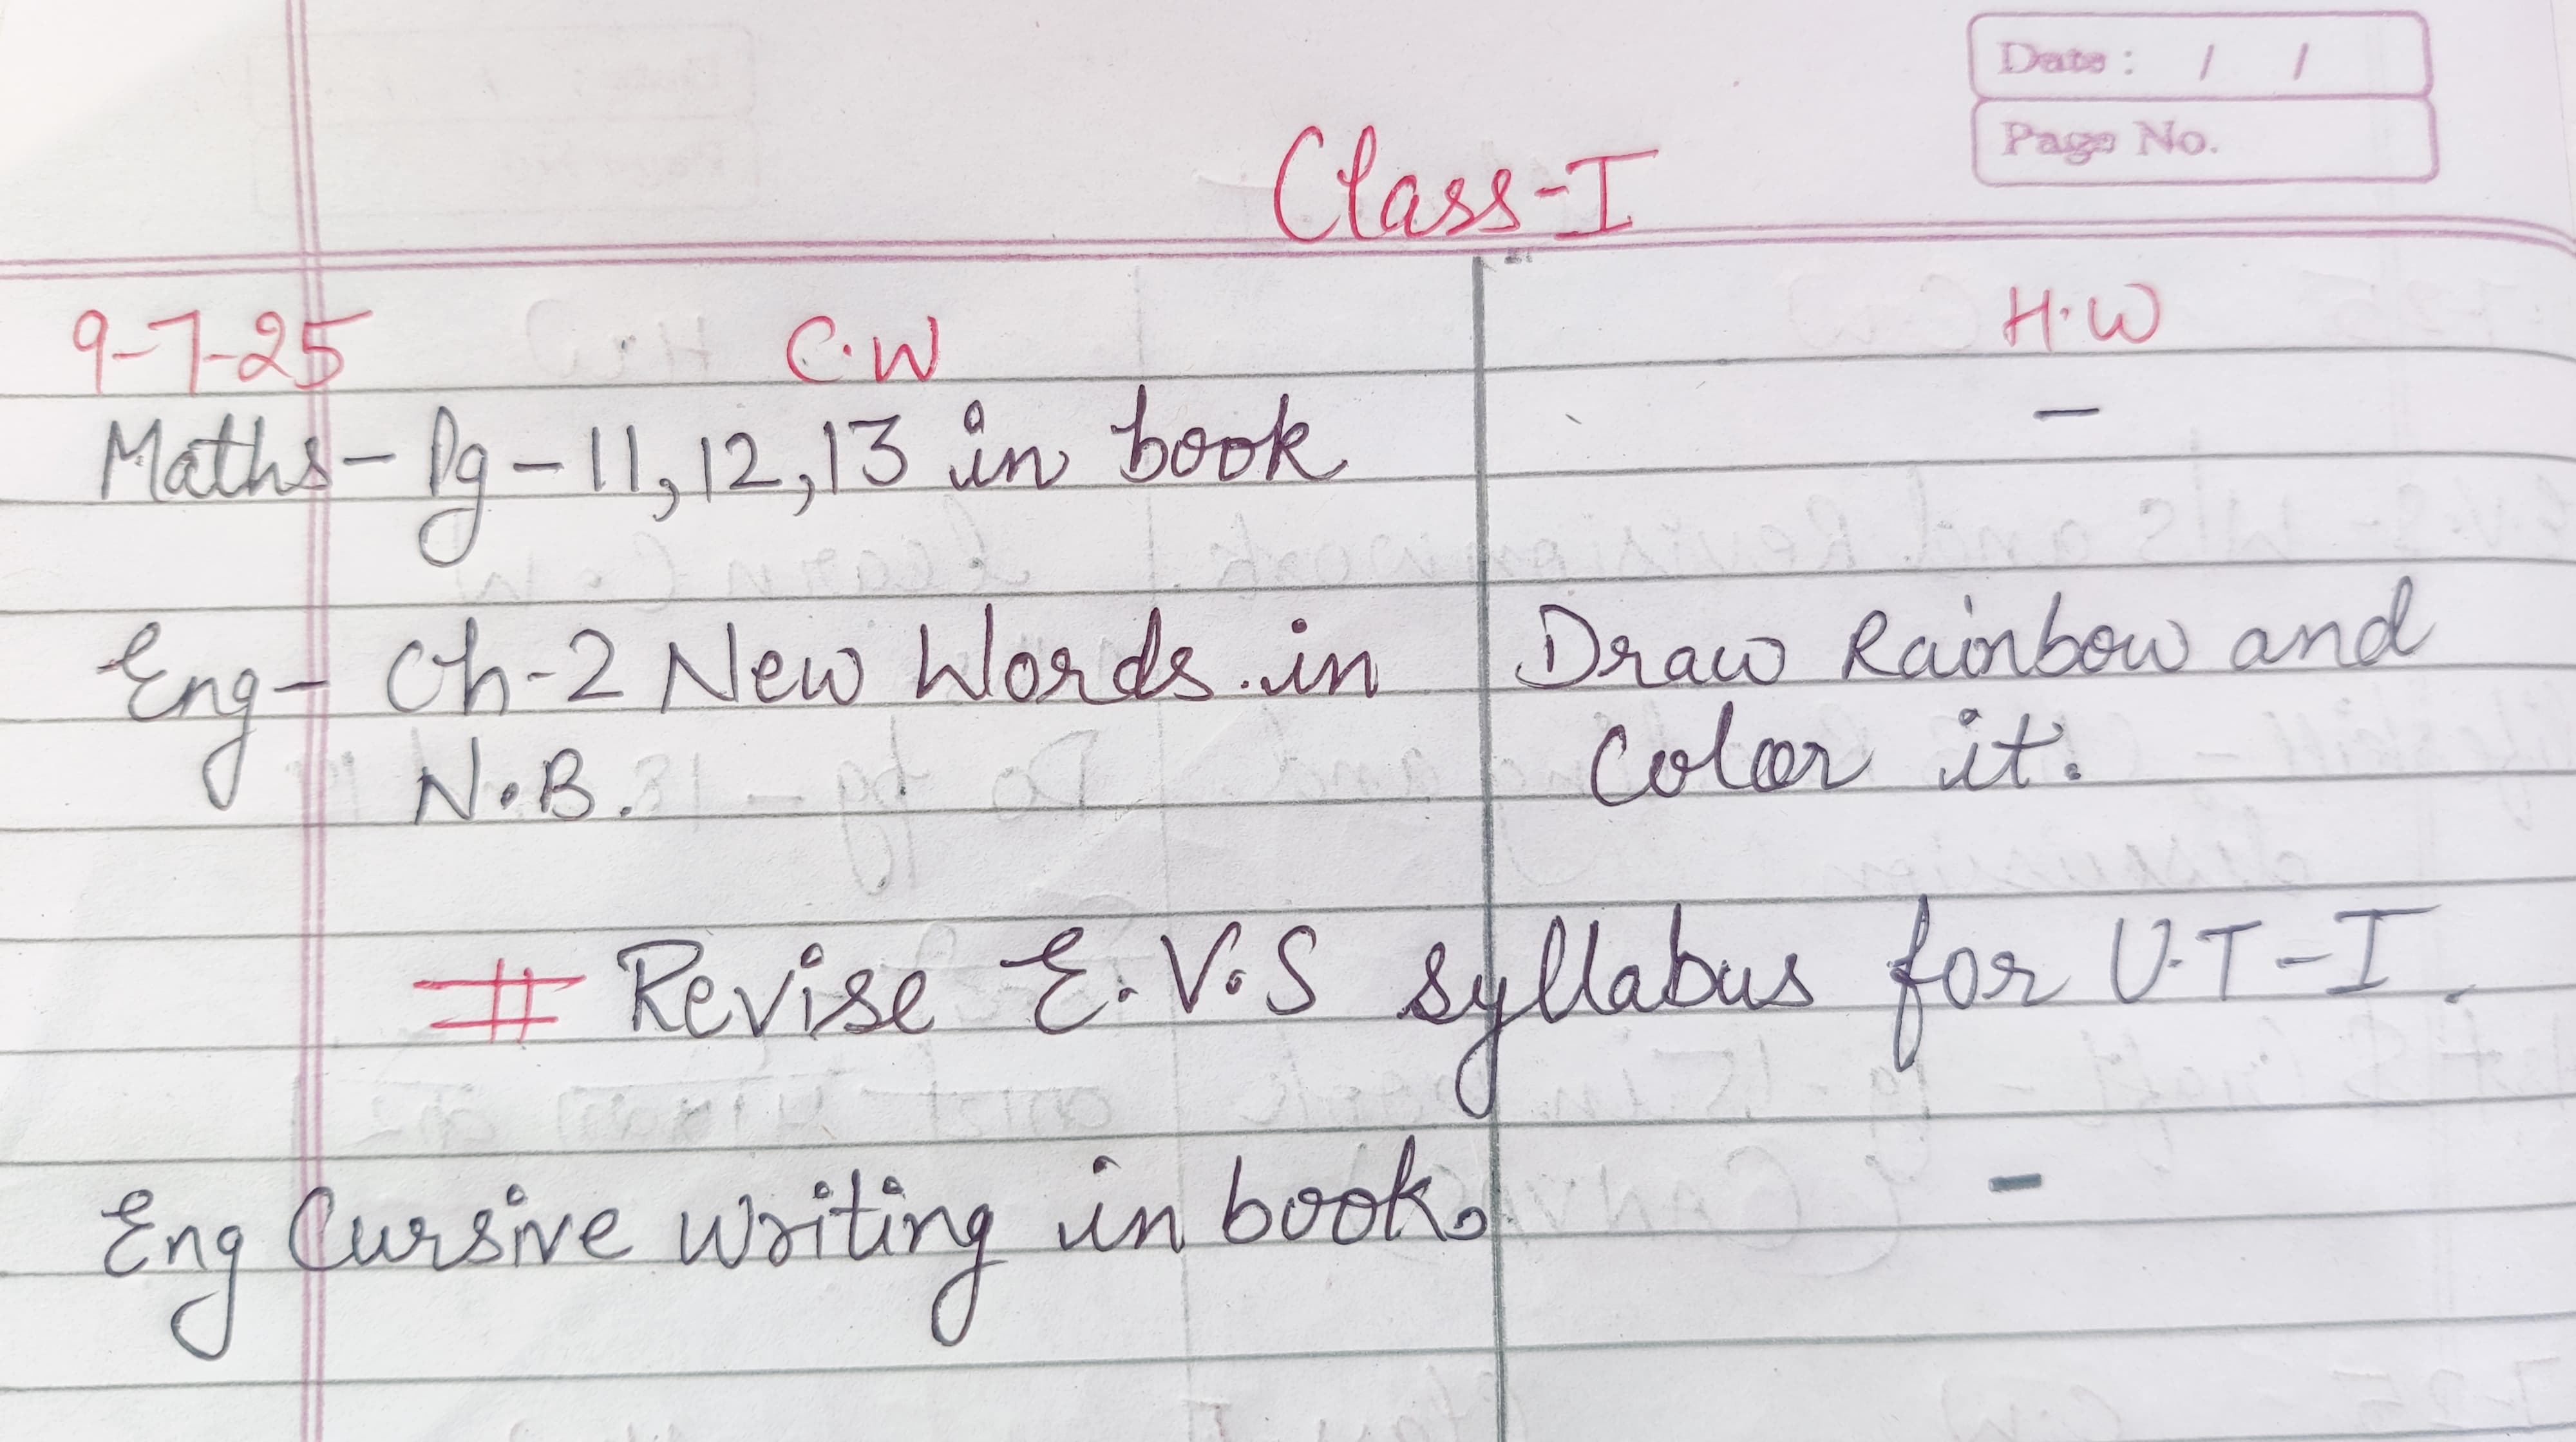 Date : / /
Page No.
Class-I
9-7-25 C.W H.W
Maths - Pg - 11, 12, 13 in book -
Eng - Ch-2 New Words in Draw Rainbow and
N.B. Color it.
# Revise E.V.S syllabus for U.T-I.
Eng Cursive writing in book. -